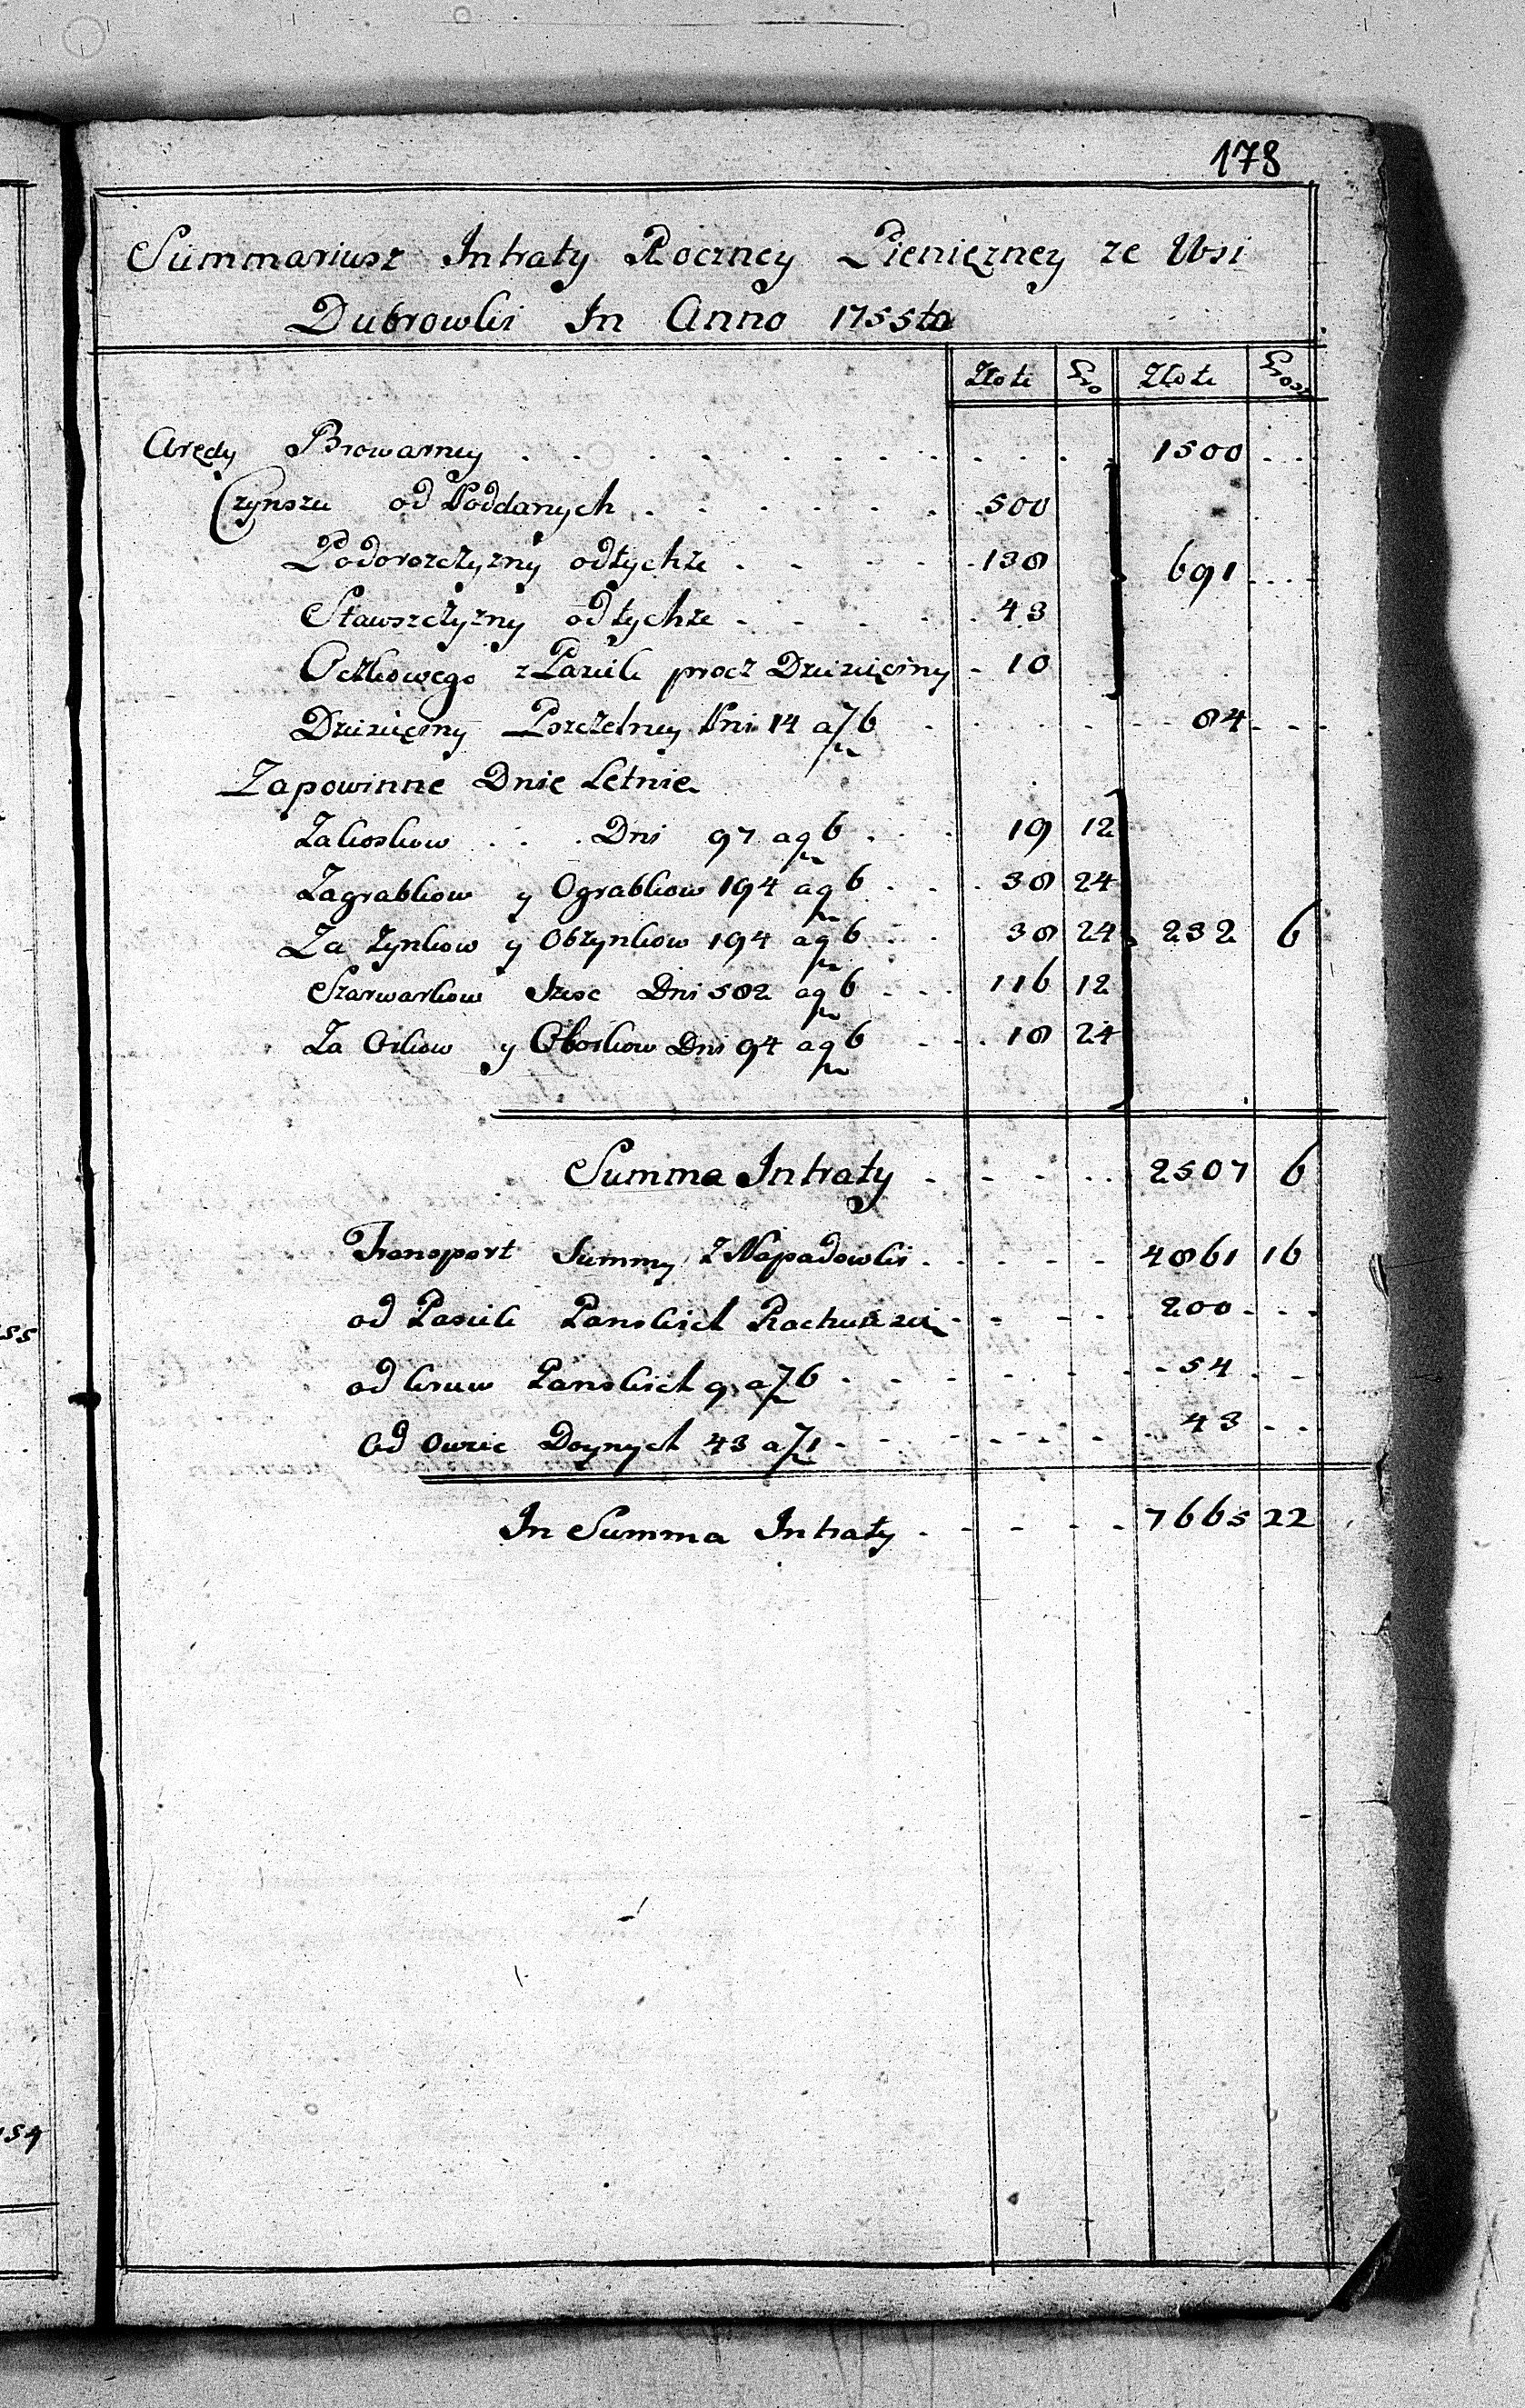 178
Summariusz Intraty Roczney Pieniężney ze Wsi
Dubrowki In Anno 1755to
Złote Gro Złote Grosz
Arędy Browarney 1500
Czynszu od Poddanych 500
Podorozczyzny odtychże 138 691
Stawszczyzny odtychże 43
Oczkowego z Pasiek procz Dziesięciny 10
Dziesięciny Pszczelney Pni 14 a f 6 84
Zapowinne Dnie Letnie
Zakoskow Dni 97 a g 6 19 12
Zagrabkow y Ograbkow 194 a g 6 38 24
Za Zynkow y Obzynkow 194 a g 6 38 24 232 6
Szarwarkow Szesc Dni 582 a g 6 116 12
Za Orkow y Oborkow Dni 94 a g 6 18 24
Summa Intraty 2507 6
Transport Summy z Napadowki 4861 16
od Pasiek Panskich 200
od krow Panskich 9 a f 6 54
Od Owiec Doynych 43 a f 1 43
In Summa Intraty 7665 22
55
54